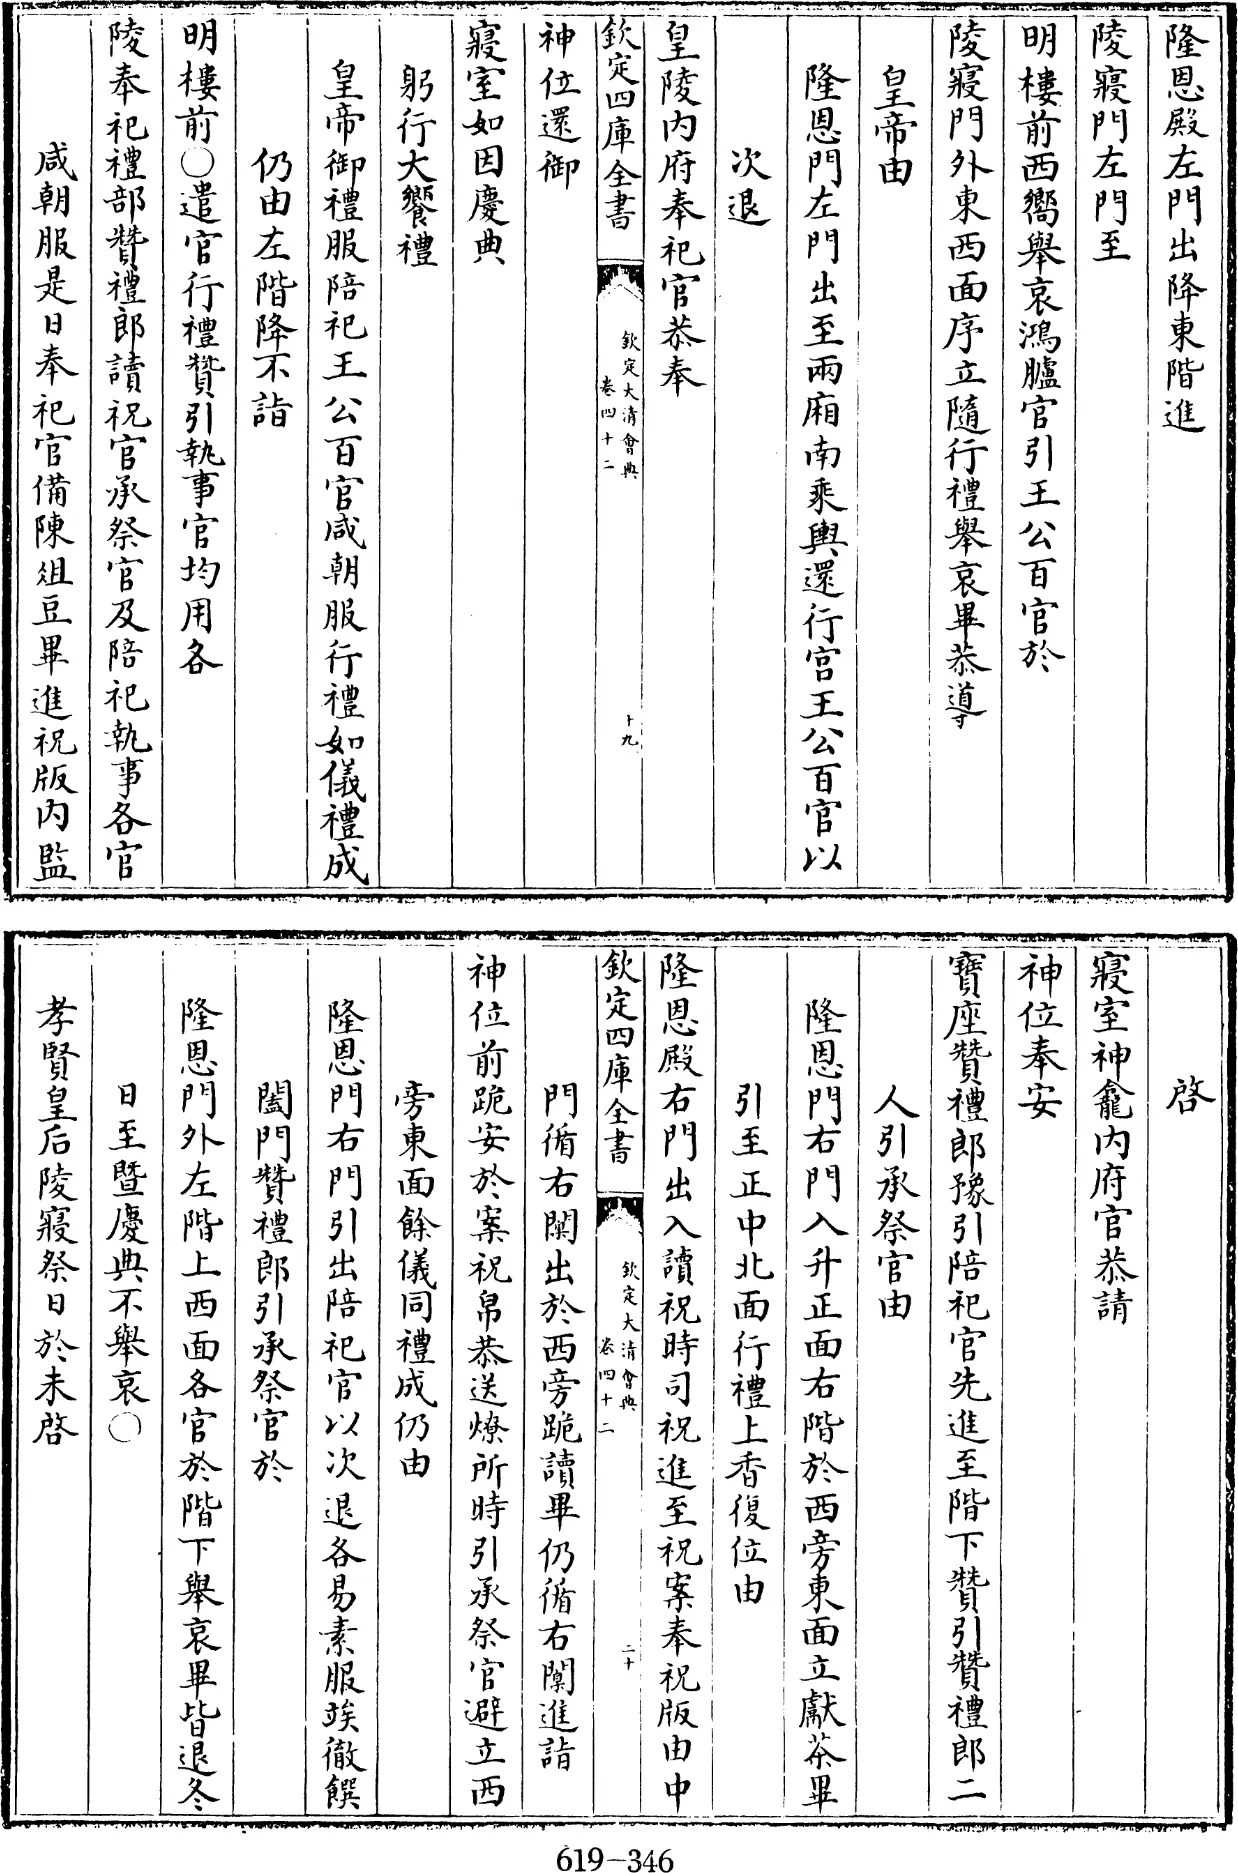 隆恩殿左門出降東階進
陵寢門左門至
明樓前西嚮舉哀鴻臚官引王公百官於
陵寢門外東西面序立隨行禮舉哀畢恭導
皇帝由
隆恩門左門出至兩廂南乘輿還行宮王公百官以
次退
皇陵內府奉祀官恭奉
欽定四庫全書
欽定大清會典
卷四十二
十九
神位還御
寢室如因慶典
躬行大饗禮
皇帝御禮服陪祀王公百官咸朝服行禮如儀禮成
仍由左階降不詣
明樓前○遣官行禮贊引執事官均用各
陵奉祀禮部贊禮郎讀祝官承祭官及陪祀執事各官
咸朝服是日奉祀官備陳俎豆畢進祝版內監
啓
寢室神龕內府官恭請
神位奉安
寶座贊禮郎豫引陪祀官先進至階下贊引贊禮郎二
人引承祭官由
隆恩門右門入升正面右階於西旁東面立獻茶畢
引至正中北面行禮上香復位由
隆恩殿右門出入讀祝時司祝進至祝案奉祝版由中
欽定四庫全書
欽定大清會典
卷四十二
二十
門循右闑出於西旁跪讀畢仍循右闑進詣
神位前跪安於案祝帛恭送燎所時引承祭官避立西
旁東面餘儀同禮成仍由
隆恩門右門引出陪祀官以次退各易素服竢徹饌
闔門贊禮郎引承祭官於
隆恩門外左階上西面各官於階下舉哀畢皆退冬
日至暨慶典不舉哀○
孝賢皇后陵寢祭日於未啓
619-346